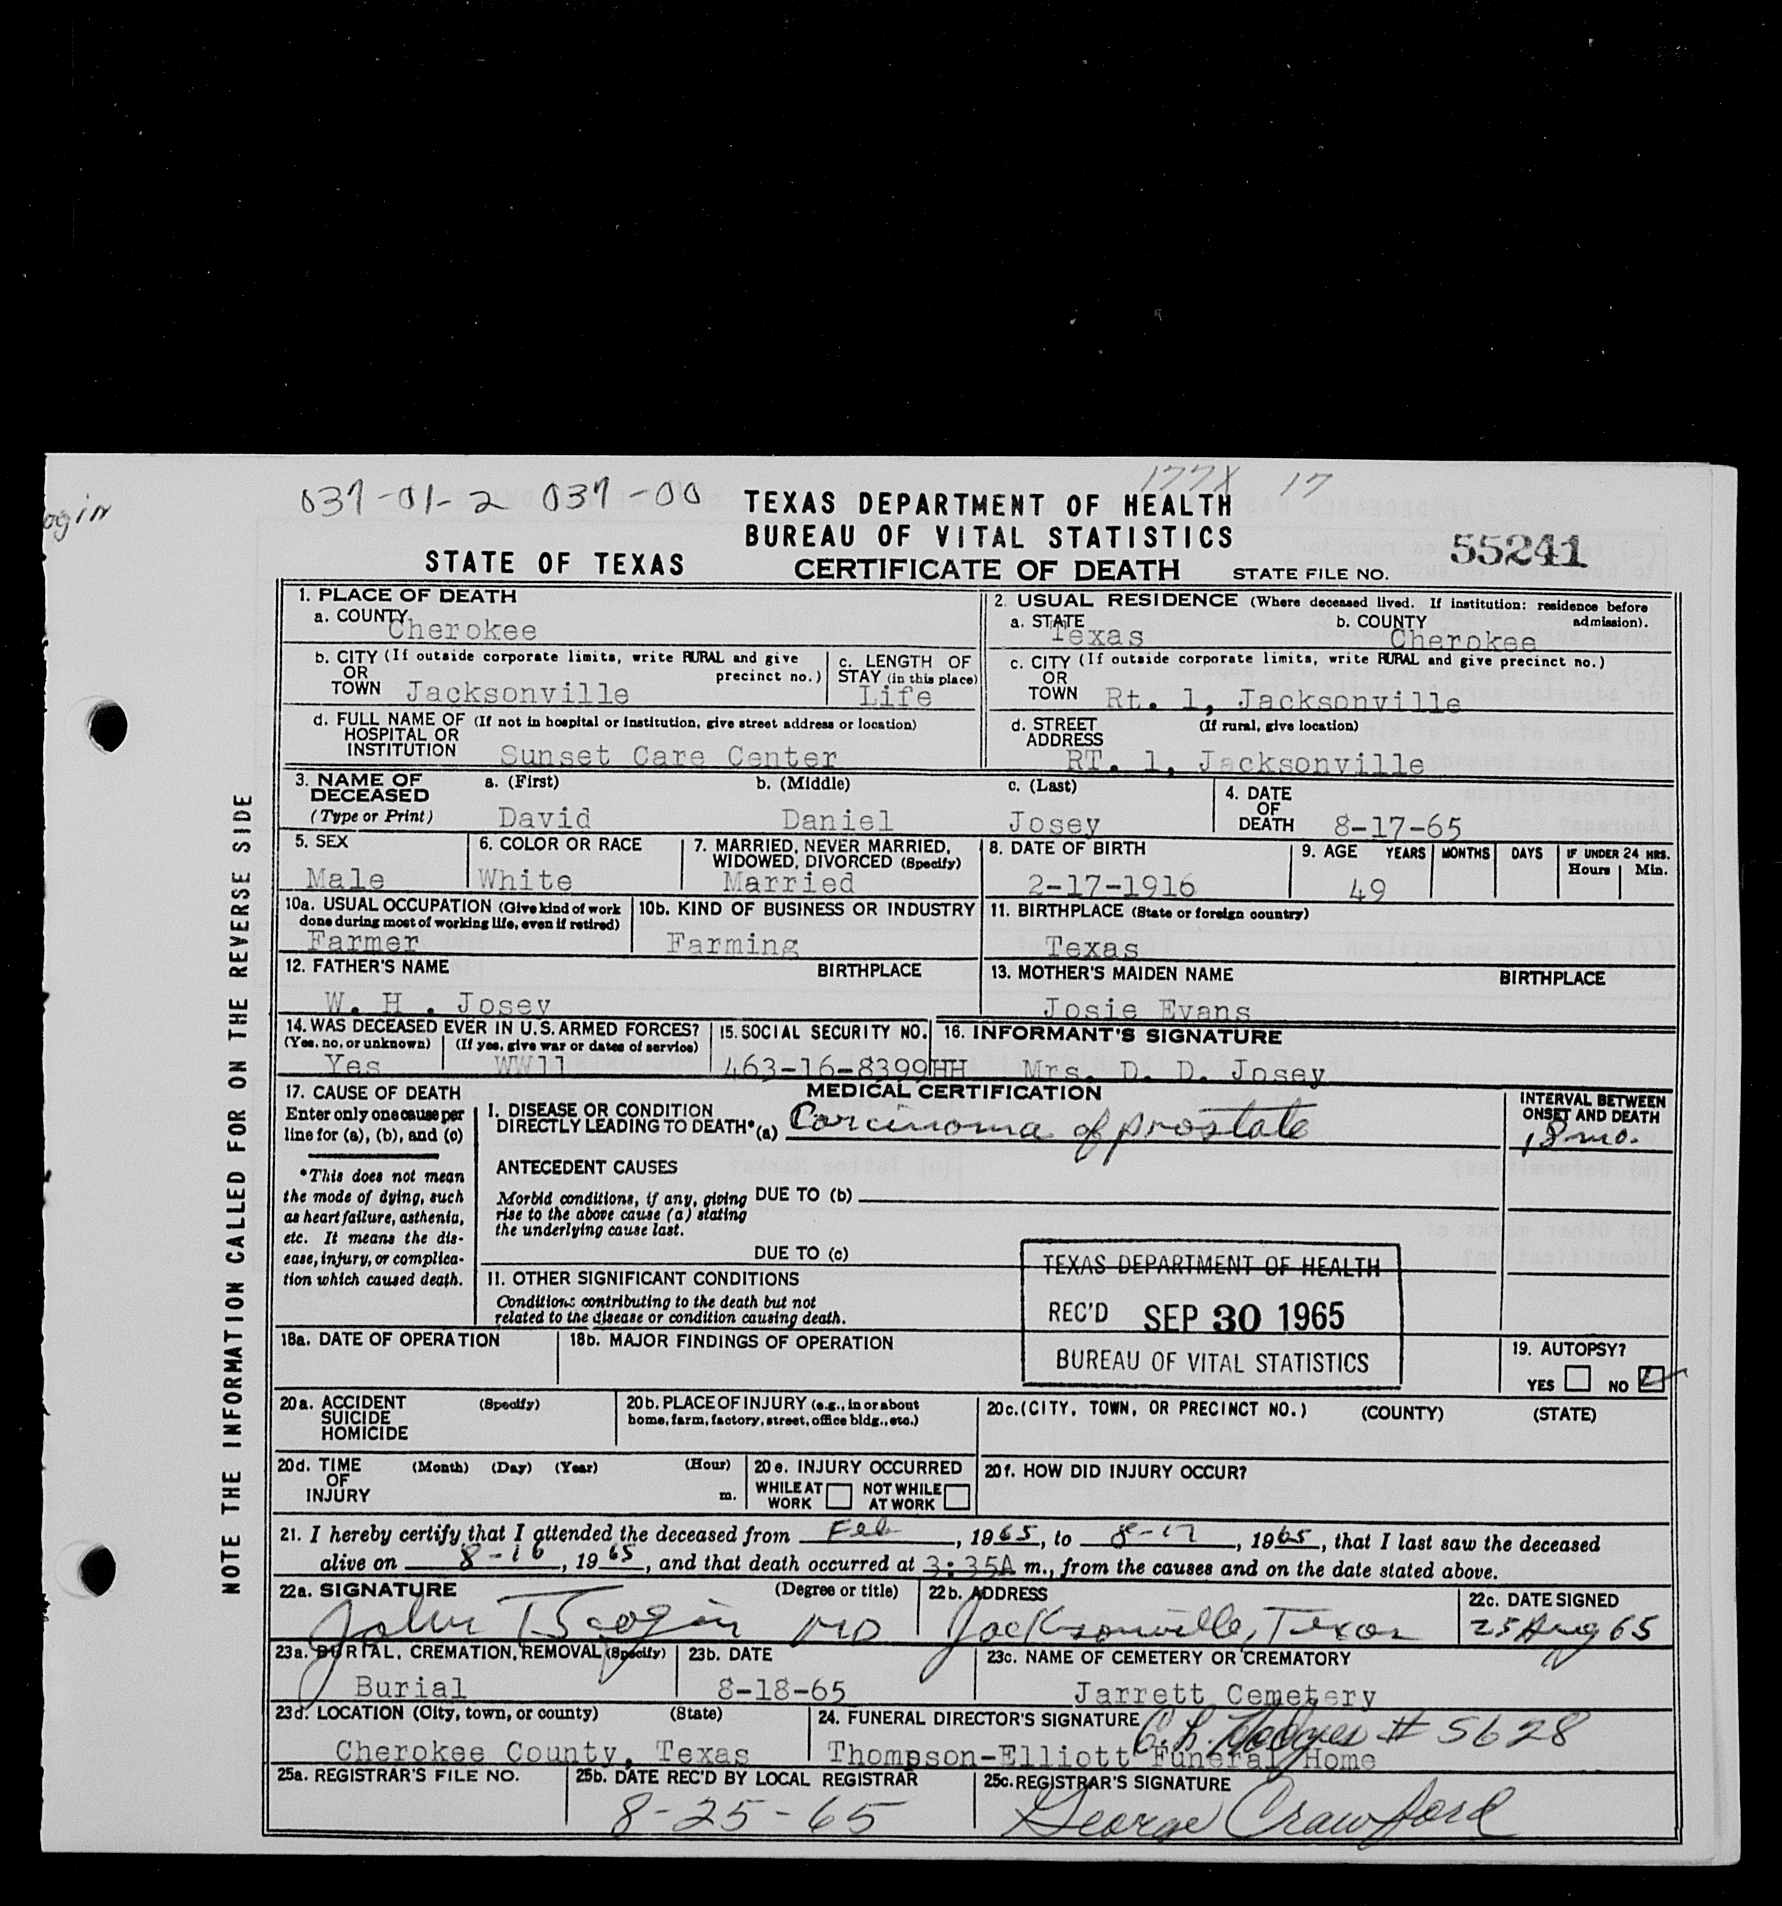 1778 17
ogin
037-01-2 037-00
TEXAS DEPARTMENT OF HEALTH
BUREAU OF VITAL STATISTICS
STATE OF TEXAS CERTIFICATE OF DEATH STATE FILE NO. 55241
NOTE THE INFORMATION CALLED FOR ON THE REVERSE SIDE
1. PLACE OF DEATH
a. COUNTY Cherokee
2. USUAL RESIDENCE (Where deceased lived. If institution: residence before admission).
a. STATE Texas b. COUNTY Cherokee
b. CITY OR TOWN (If outside corporate limits, write RURAL and give precinct no.) Jacksonville
c. LENGTH OF STAY (in this place) Life
c. CITY OR TOWN (If outside corporate limits, write RURAL and give precinct no.) Rt. 1, Jacksonville
d. FULL NAME OF HOSPITAL OR INSTITUTION (If not in hospital or institution, give street address or location) Sunset Care Center
d. STREET ADDRESS (If rural, give location) RT. 1, Jacksonville
3. NAME OF DECEASED (Type or Print)
a. (First) David b. (Middle) Daniel c. (Last) Josey
4. DATE OF DEATH 8-17-65
5. SEX Male
6. COLOR OR RACE White
7. MARRIED, NEVER MARRIED, WIDOWED, DIVORCED (Specify) Married
8. DATE OF BIRTH 2-17-1916
9. AGE YEARS 49 MONTHS DAYS IF UNDER 24 HRS. Hours Min.
10a. USUAL OCCUPATION (Give kind of work done during most of working life, even if retired) Farmer
10b. KIND OF BUSINESS OR INDUSTRY Farming
11. BIRTHPLACE (State or foreign country) Texas
12. FATHER'S NAME BIRTHPLACE
W. H. Josey
13. MOTHER'S MAIDEN NAME BIRTHPLACE
Josie Evans
14. WAS DECEASED EVER IN U.S. ARMED FORCES?
(Yes, no, or unknown) Yes (If yes, give war or dates of service) WW11
15. SOCIAL SECURITY NO. 463-16-8399HH
16. INFORMANT'S SIGNATURE Mrs. D. D. Josey
17. CAUSE OF DEATH
Enter only one cause per line for (a), (b), and (c)
*This does not mean the mode of dying, such as heart failure, asthenia, etc. It means the disease, injury, or complication which caused death.
MEDICAL CERTIFICATION
I. DISEASE OR CONDITION DIRECTLY LEADING TO DEATH* (a) Carcinoma of prostate
INTERVAL BETWEEN ONSET AND DEATH
18 mo.
ANTECEDENT CAUSES
Morbid conditions, if any, giving rise to the above cause (a) stating the underlying cause last.
DUE TO (b)
DUE TO (c)
II. OTHER SIGNIFICANT CONDITIONS
Conditions contributing to the death but not related to the disease or condition causing death.
TEXAS DEPARTMENT OF HEALTH
REC'D SEP 30 1965
BUREAU OF VITAL STATISTICS
18a. DATE OF OPERATION
18b. MAJOR FINDINGS OF OPERATION
19. AUTOPSY?
YES NO
20a. ACCIDENT SUICIDE HOMICIDE (Specify)
20b. PLACE OF INJURY (e.g., in or about home, farm, factory, street, office bldg., etc.)
20c. (CITY, TOWN, OR PRECINCT NO.) (COUNTY) (STATE)
20d. TIME OF INJURY (Month) (Day) (Year) (Hour) m.
20e. INJURY OCCURRED
WHILE AT WORK NOT WHILE AT WORK
20f. HOW DID INJURY OCCUR?
21. I hereby certify that I attended the deceased from Feb, 1965, to 8-17, 1965, that I last saw the deceased
alive on 8-16, 1965, and that death occurred at 3:35A m., from the causes and on the date stated above.
22a. SIGNATURE (Degree or title)
John T Scogin MD
22b. ADDRESS
Jacksonville, Texas
22c. DATE SIGNED
25 Aug 65
23a. BURIAL, CREMATION, REMOVAL (Specify) Burial
23b. DATE 8-18-65
23c. NAME OF CEMETERY OR CREMATORY Jarrett Cemetery
23d. LOCATION (City, town, or county) (State)
Cherokee County, Texas
24. FUNERAL DIRECTOR'S SIGNATURE C. L. Hodges # 5628
Thompson-Elliott Funeral Home
25a. REGISTRAR'S FILE NO.
25b. DATE REC'D BY LOCAL REGISTRAR
8-25-65
25c. REGISTRAR'S SIGNATURE
George Crawford